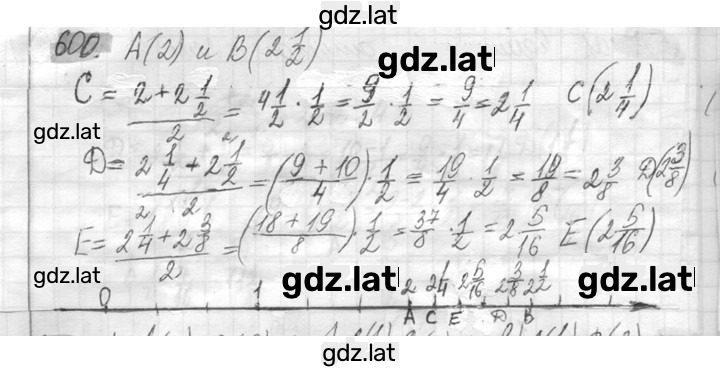 gdz.latl
600. A(2) и B(2 1/2)
gdz.latl
C = (2+2 1/2)/2 = 4 1/2 · 1/2 = 9/2 · 1/2 = 9/4 = 2 1/4 C(2 1/4)
gdz.latl
D = (2 1/4 + 2 1/2)/2 = ((9+10)/4) · 1/2 = 19/4 · 1/2 = 19/8 = 2 3/8 D(2 3/8)
E = (2 1/4 + 2 3/8)/2 = ((18+19)/8) · 1/2 = 37/8 · 1/2 = 2 5/16 E(2 5/16)
gdz.latl gdz.latl gdz.latl
0 1 2 2 1/4 2 5/16 2 3/8 2 1/2
A C E D B
gdz.latl